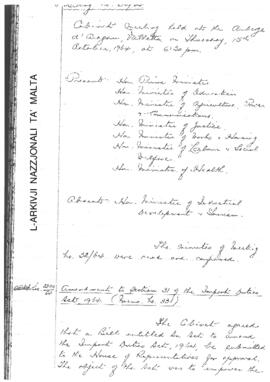 Cabinet Meeting held at the Auberge
d'Aragon, Valletta on Thursday, 15th
October, 1964, at 6.30 pm.
Present: Hon. Prime Minister
Hon. Minister of Education
Hon. Minister of Agriculture, Power
& Communications
Hon. Minister of Justice
Hon. Minister of Works & Housing
Hon. Minister of Labour & Social
Welfare
Hon. Minister of Health.
Absent: Hon. Minister of Industrial
Development & Tourism.
The minutes of Meeting
No. 32/64 were read and confirmed.
Amendment to Section 31 of the Import Duties
Act, 1964
The Cabinet agreed
that a Bill entitled An Act to amend
the Import Duties Act, 1964, be submitted
to the House of Representatives for approval.
The object of the Act was to empower the
L-ARKIVJI NAZZJONALI TA' MALTA